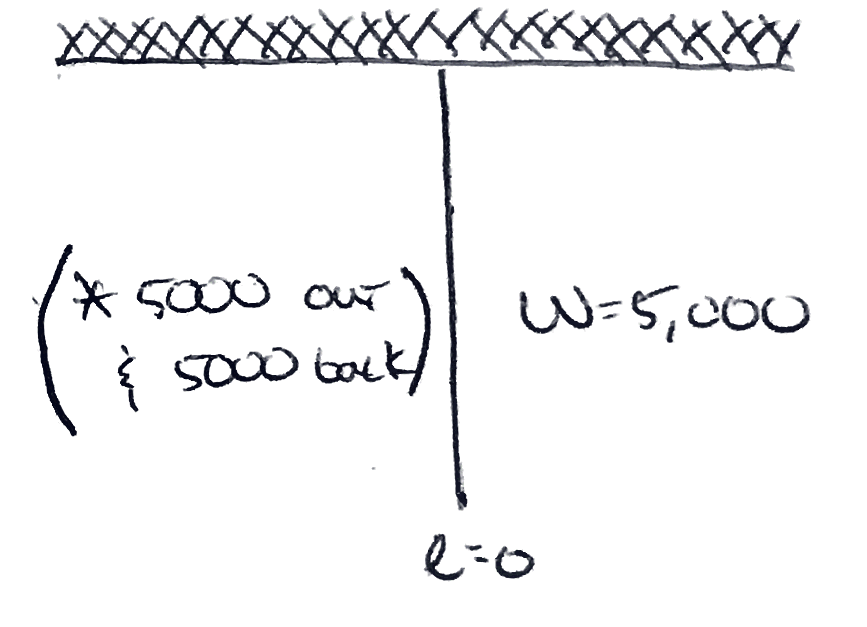 (* 5000 out
& 5000 back)
W=5,000
l=0